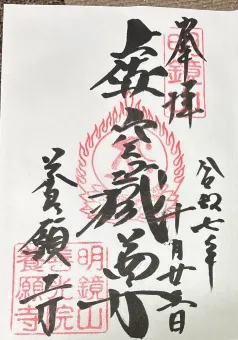 奉拝
令和七年
十月廿 日
虚空蔵菩薩
養願寺
明鏡山
善光院
養願寺